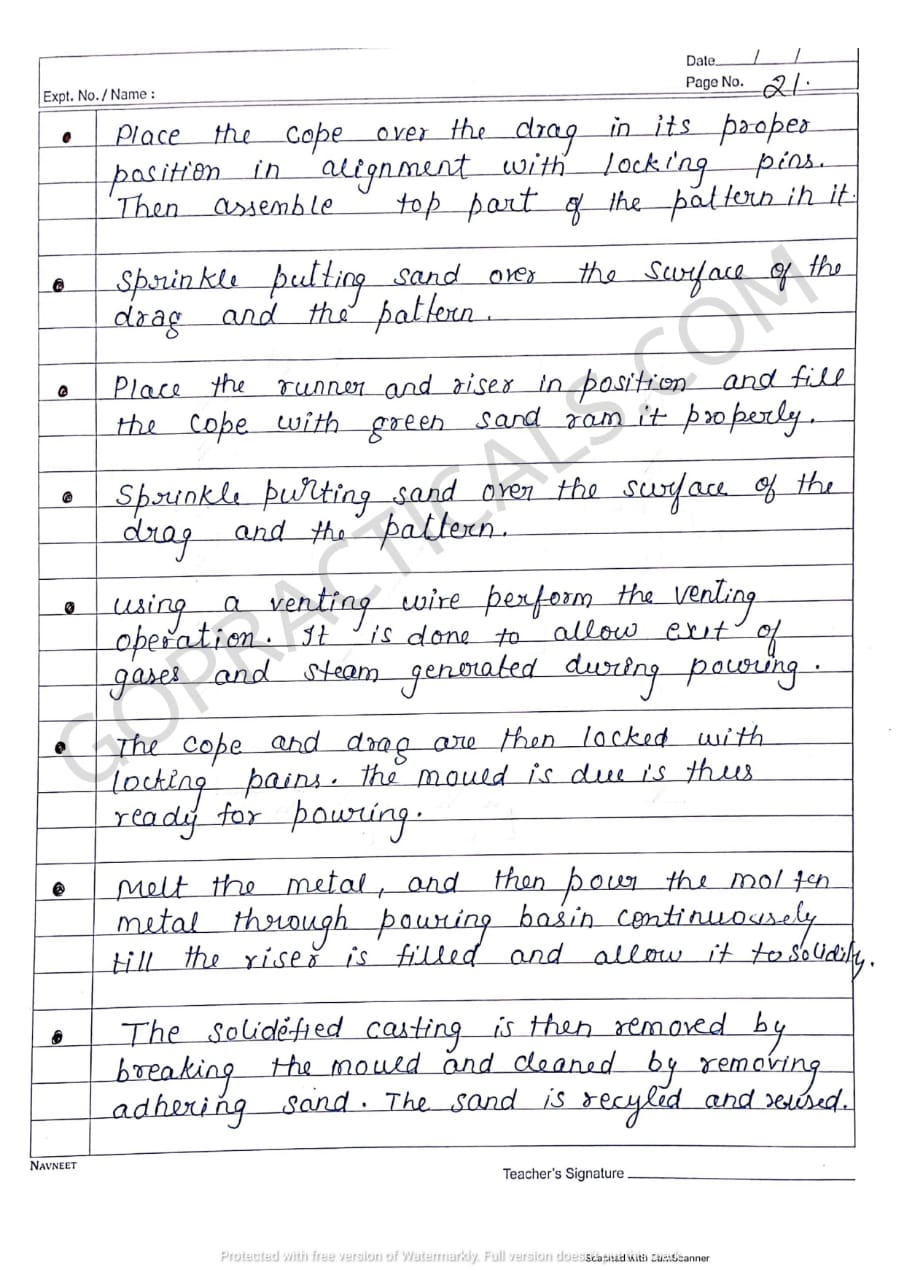 Date / /
Page No. 21.
Expt. No. / Name :
Place the cope over the drag in its proper
position in alignment with locking pins.
Then assemble top part of the pattern in it.
Sprinkle putting sand over the surface of the
drag and the pattern.
Place the runner and riser in position and fill
the cope with green sand ram it properly.
Sprinkle purting sand over the surface of the
drag and the pattern.
using a venting wire perform the venting
operation. It is done to allow exit of
gases and steam generated during pouring.
The cope and drag are then locked with
locking pains. the mould is due is thus
ready for pouring.
Melt the metal, and then pour the molten
metal through pouring basin continuousely
till the riser is filled and allow it to solidify.
The solidefied casting is then removed by
breaking the mould and cleaned by removing
adhering sand. The sand is recyled and reused.
GOPRACTICALS.COM
NAVNEET
Teacher's Signature
Protected with free version of Watermarkly. Full version doesn't put this mark.
Scanned with CamScanner